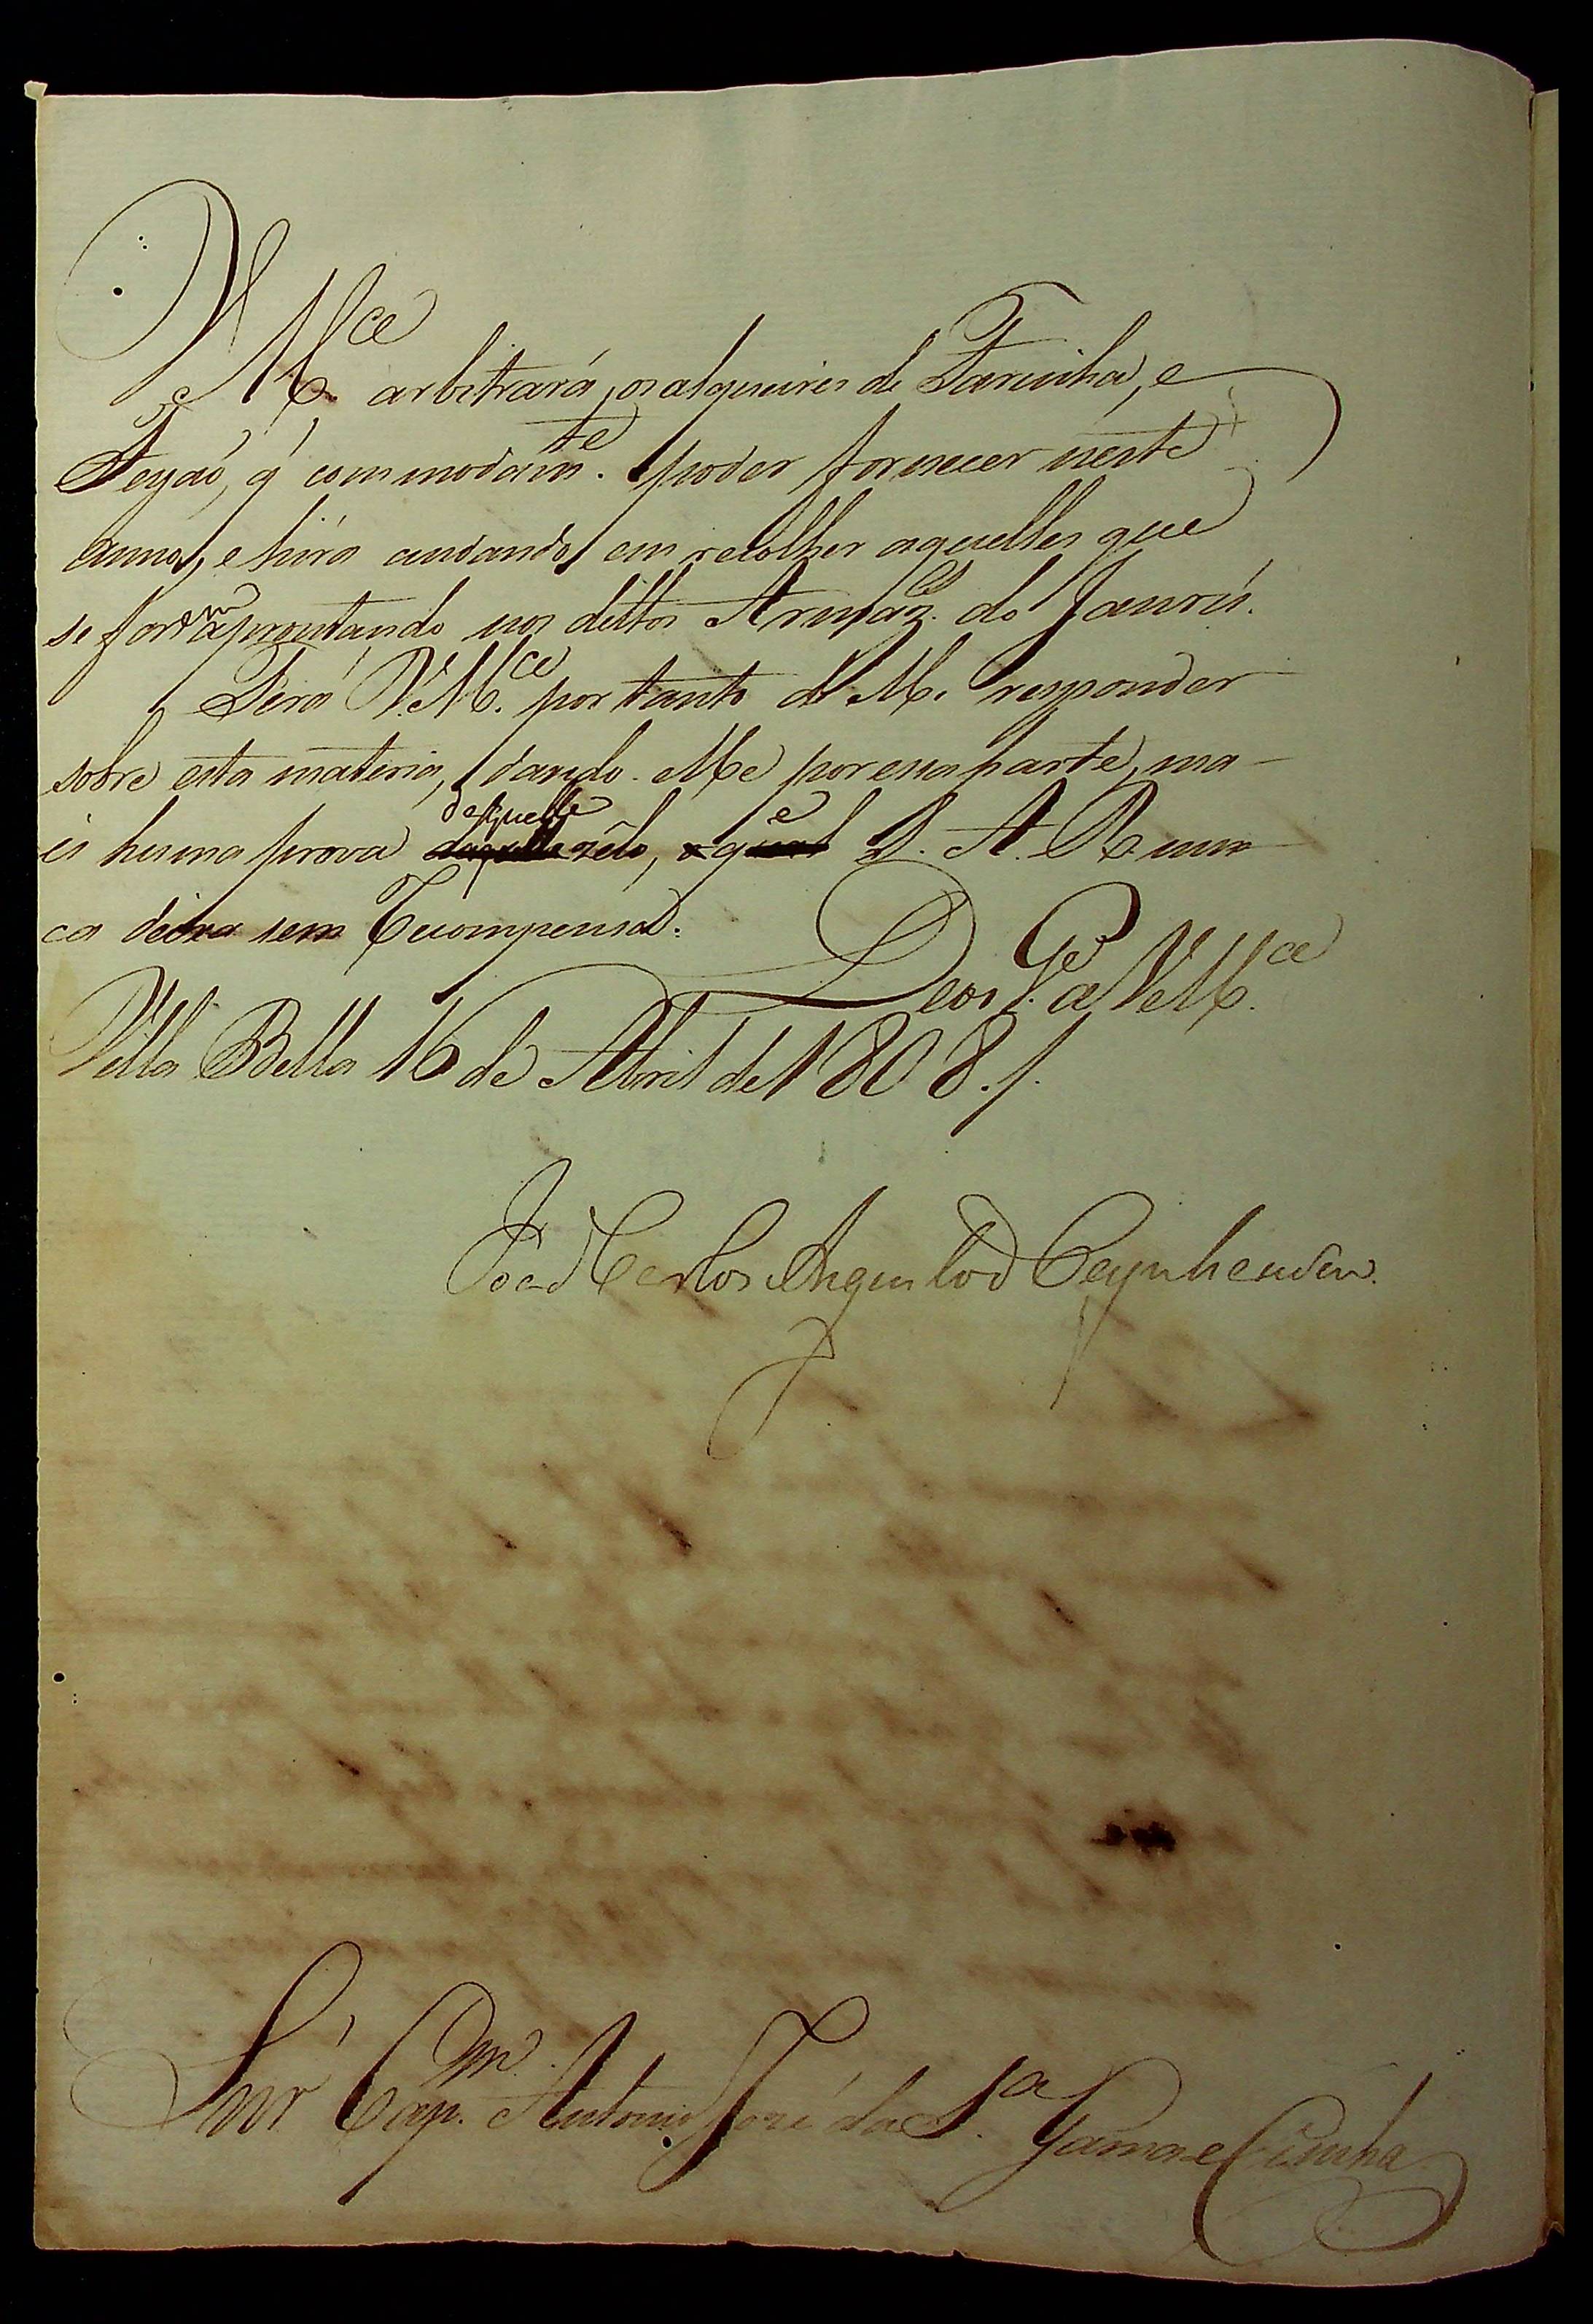 V Mce arbitrará, os alqueires de Farinha, e
Feyaó, q̃ commodamte. poder fornecer neste
anno, e hirá cuidando em recolher aquelles que
se forem aprontando nos dittos Armazes. do Jaurú.
Terá V.Mce. por tanto de Me responder
sobre esta materia, dando-Me por essa parte, ma-
is huma prova daquelle zêlo, que S. A. R. nun-
ca deixa sem Recompensa.
Deos Ge. a VMce.
Villa Bella 16 de Abril de 1808.
João Carlos Augusto d'Oeynhausen.
Snr' Capm. Antonio José da Sa. Gama e Cunha